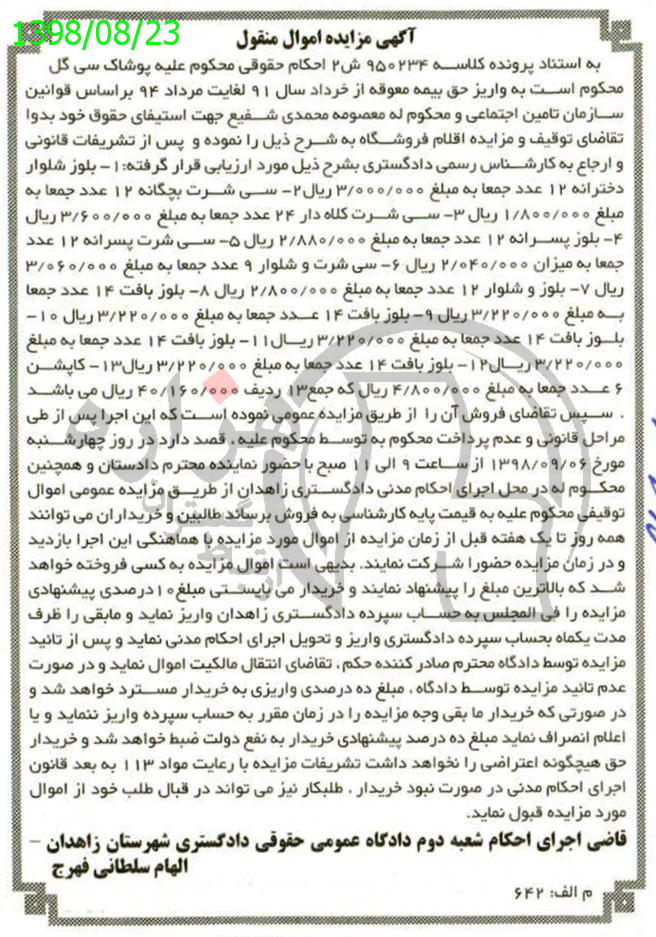 1398/08/23
آگهی مزایده اموال منقول
به استناد پرونده کلاسه ۹۵۰۲۳۴ ش۲ احکام حقوقی محکوم علیه پوشاک سی گل
محکوم است به واریز حق بیمه معوقه از خرداد سال ۹۱ لغایت مرداد ۹۴ براساس قوانین
سازمان تامین اجتماعی و محکوم له معصومه محمدی شفیع جهت استیفای حقوق خود بدوا
تقاضای توقیف و مزایده اقلام فروشگاه به شرح ذیل را نموده و پس از تشریفات قانونی
و ارجاع به کارشناس رسمی دادگستری بشرح ذیل مورد ارزیابی قرار گرفته:۱- بلوز شلوار
دخترانه ۱۲ عدد جمعا به مبلغ ۳/۰۰۰/۰۰۰ ریال۲- سی شرت بچگانه ۱۲ عدد جمعا به
مبلغ ۱/۸۰۰/۰۰۰ ریال ۳- سی شرت کلاه دار ۲۴ عدد جمعا به مبلغ ۳/۶۰۰/۰۰۰ ریال
۴- بلوز پسرانه ۱۲ عدد جمعا به مبلغ ۲/۸۸۰/۰۰۰ ریال ۵- سی شرت پسرانه ۱۲ عدد
جمعا به میزان ۲/۰۴۰/۰۰۰ ریال ۶- سی شرت و شلوار ۹ عدد جمعا به مبلغ ۳/۰۶۰/۰۰۰
ریال ۷- بلوز و شلوار ۱۲ عدد جمعا به مبلغ ۲/۸۰۰/۰۰۰ ریال ۸- بلوز بافت ۱۴ عدد جمعا
به مبلغ ۳/۲۲۰/۰۰۰ ریال ۹- بلوز بافت ۱۴ عدد جمعا به مبلغ ۳/۲۲۰/۰۰۰ ریال ۱۰-
بلوز بافت ۱۴ عدد جمعا به مبلغ ۳/۲۲۰/۰۰۰ ریال۱۱- بلوز بافت ۱۴ عدد جمعا به مبلغ
۳/۲۲۰/۰۰۰ ریال۱۲- بلوز بافت ۱۴ عدد جمعا به مبلغ ۳/۲۲۰/۰۰۰ ریال۱۳- کاپشن
۶ عدد جمعا به مبلغ ۴/۸۰۰/۰۰۰ ریال که جمع۱۳ ردیف ۴۰/۱۶۰/۰۰۰ ریال می باشد
. سپس تقاضای فروش آن را از طریق مزایده عمومی نموده است که این اجرا پس از طی
مراحل قانونی و عدم پرداخت محکوم به توسط محکوم علیه ، قصد دارد در روز چهارشنبه
مورخ ۱۳۹۸/۰۹/۰۶ از ساعت ۹ الی ۱۱ صبح با حضور نماینده محترم دادستان و همچنین
محکوم له در محل اجرای احکام مدنی دادگستری زاهدان از طریق مزایده عمومی اموال
توقیفی محکوم علیه به قیمت پایه کارشناسی به فروش برساند طالبین و خریداران می توانند
همه روز تا یک هفته قبل از زمان مزایده از اموال مورد مزایده با هماهنگی این اجرا بازدید
و در زمان مزایده حضورا شرکت نمایند. بدیهی است اموال مزایده به کسی فروخته خواهد
شد که بالاترین مبلغ را پیشنهاد نمایند و خریدار می بایستی مبلغ۱۰درصدی پیشنهادی
مزایده را فی المجلس به حساب سپرده دادگستری زاهدان واریز نماید و مابقی را ظرف
مدت یکماه بحساب سپرده دادگستری واریز و تحویل اجرای احکام مدنی نماید و پس از تائید
مزایده توسط دادگاه محترم صادر کننده حکم ، تقاضای انتقال مالکیت اموال نماید و در صورت
عدم تائید مزایده توسط دادگاه ، مبلغ ده درصدی واریزی به خریدار مسترد خواهد شد و
در صورتی که خریدار ما بقی وجه مزایده را در زمان مقرر به حساب سپرده واریز ننماید و یا
اعلام انصراف نماید مبلغ ده درصد پیشنهادی خریدار به نفع دولت ضبط خواهد شد و خریدار
حق هیچگونه اعتراضی را نخواهد داشت تشریفات مزایده با رعایت مواد ۱۱۳ به بعد قانون
اجرای احکام مدنی در صورت نبود خریدار ، طلبکار نیز می تواند در قبال طلب خود از اموال
مورد مزایده قبول نماید.
قاضی اجرای احکام شعبه دوم دادگاه عمومی حقوقی دادگستری شهرستان زاهدان -
الهام سلطانی فهرج
م الف: ۶۴۲